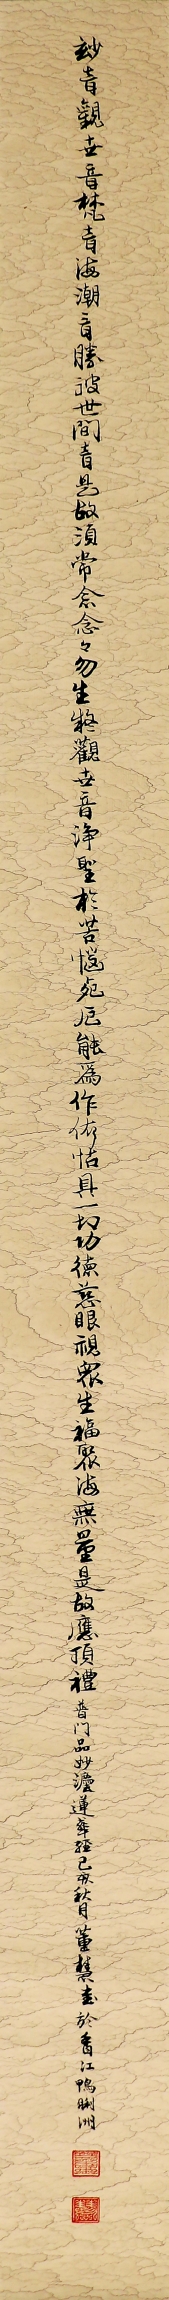 妙音觀世音梵音海潮音勝彼世間音是故須常念念々勿生疑觀世音淨聖於苦惱死厄能為作依怙具一切功德慈眼視眾生福聚海無量是故應頂禮 普门品妙灋蓮華經己丑秋月董慧書於香江鴨脷洲